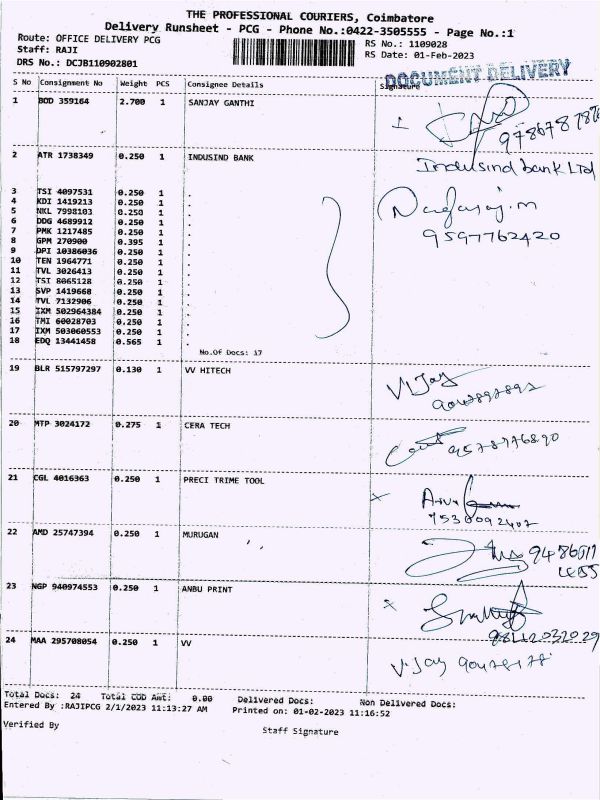 THE PROFESSIONAL COURIERS, Coimbatore
Delivery Runsheet - PCG - Phone No.:0422-3505555 - Page No.:1
Route: OFFICE DELIVERY PCG RS No.: 1109028
Staff: RAJI RS Date: 01-Feb-2023
DRS No.: DCJB110902801
DOCUMENT DELIVERY
S No Consignment No Weight PCS Consignee Details Signature
1 BOD 359164 2.700 1 SANJAY GANTHI
2 ATR 1738349 0.250 1 INDUSIND BANK Indusind bank Ltd
3 TSI 4097531 0.250 1 .
4 KDI 1419213 0.250 1 . Nagaraj.m
5 NKL 7998103 0.250 1 .
6 DDG 4689912 0.250 1 .
7 PMK 1217485 0.250 1 . 9597762420
8 GPM 270900 0.395 1 .
9 DPI 10386036 0.250 1 .
10 TEN 1964771 0.250 1 .
11 TVL 3026413 0.250 1 .
12 TSI 8065128 0.250 1 .
13 SVP 1419668 0.250 1 .
14 TVL 7132906 0.250 1 .
15 IXM 502964384 0.250 1 .
16 TMI 60028703 0.250 1 .
17 IXM 503060553 0.250 1 .
18 EDQ 13441458 0.565 1 .
No.Of Docs: 17
19 BLR 515797297 0.130 1 VV HITECH Vijay
20 MTP 3024172 0.275 1 CERA TECH
9578776890
21 CGL 4016363 0.250 1 PRECI TRIME TOOL
22 AMD 25747394 0.250 1 MURUGAN
23 NGP 940974553 0.250 1 ANBU PRINT
24 MAA 295708054 0.250 1 VV
Vijay
Total Docs: 24 Total COD Amt: 0.00 Delivered Docs: Non Delivered Docs:
Entered By :RAJIPCG 2/1/2023 11:13:27 AM Printed on: 01-02-2023 11:16:52
Verified By Staff Signature